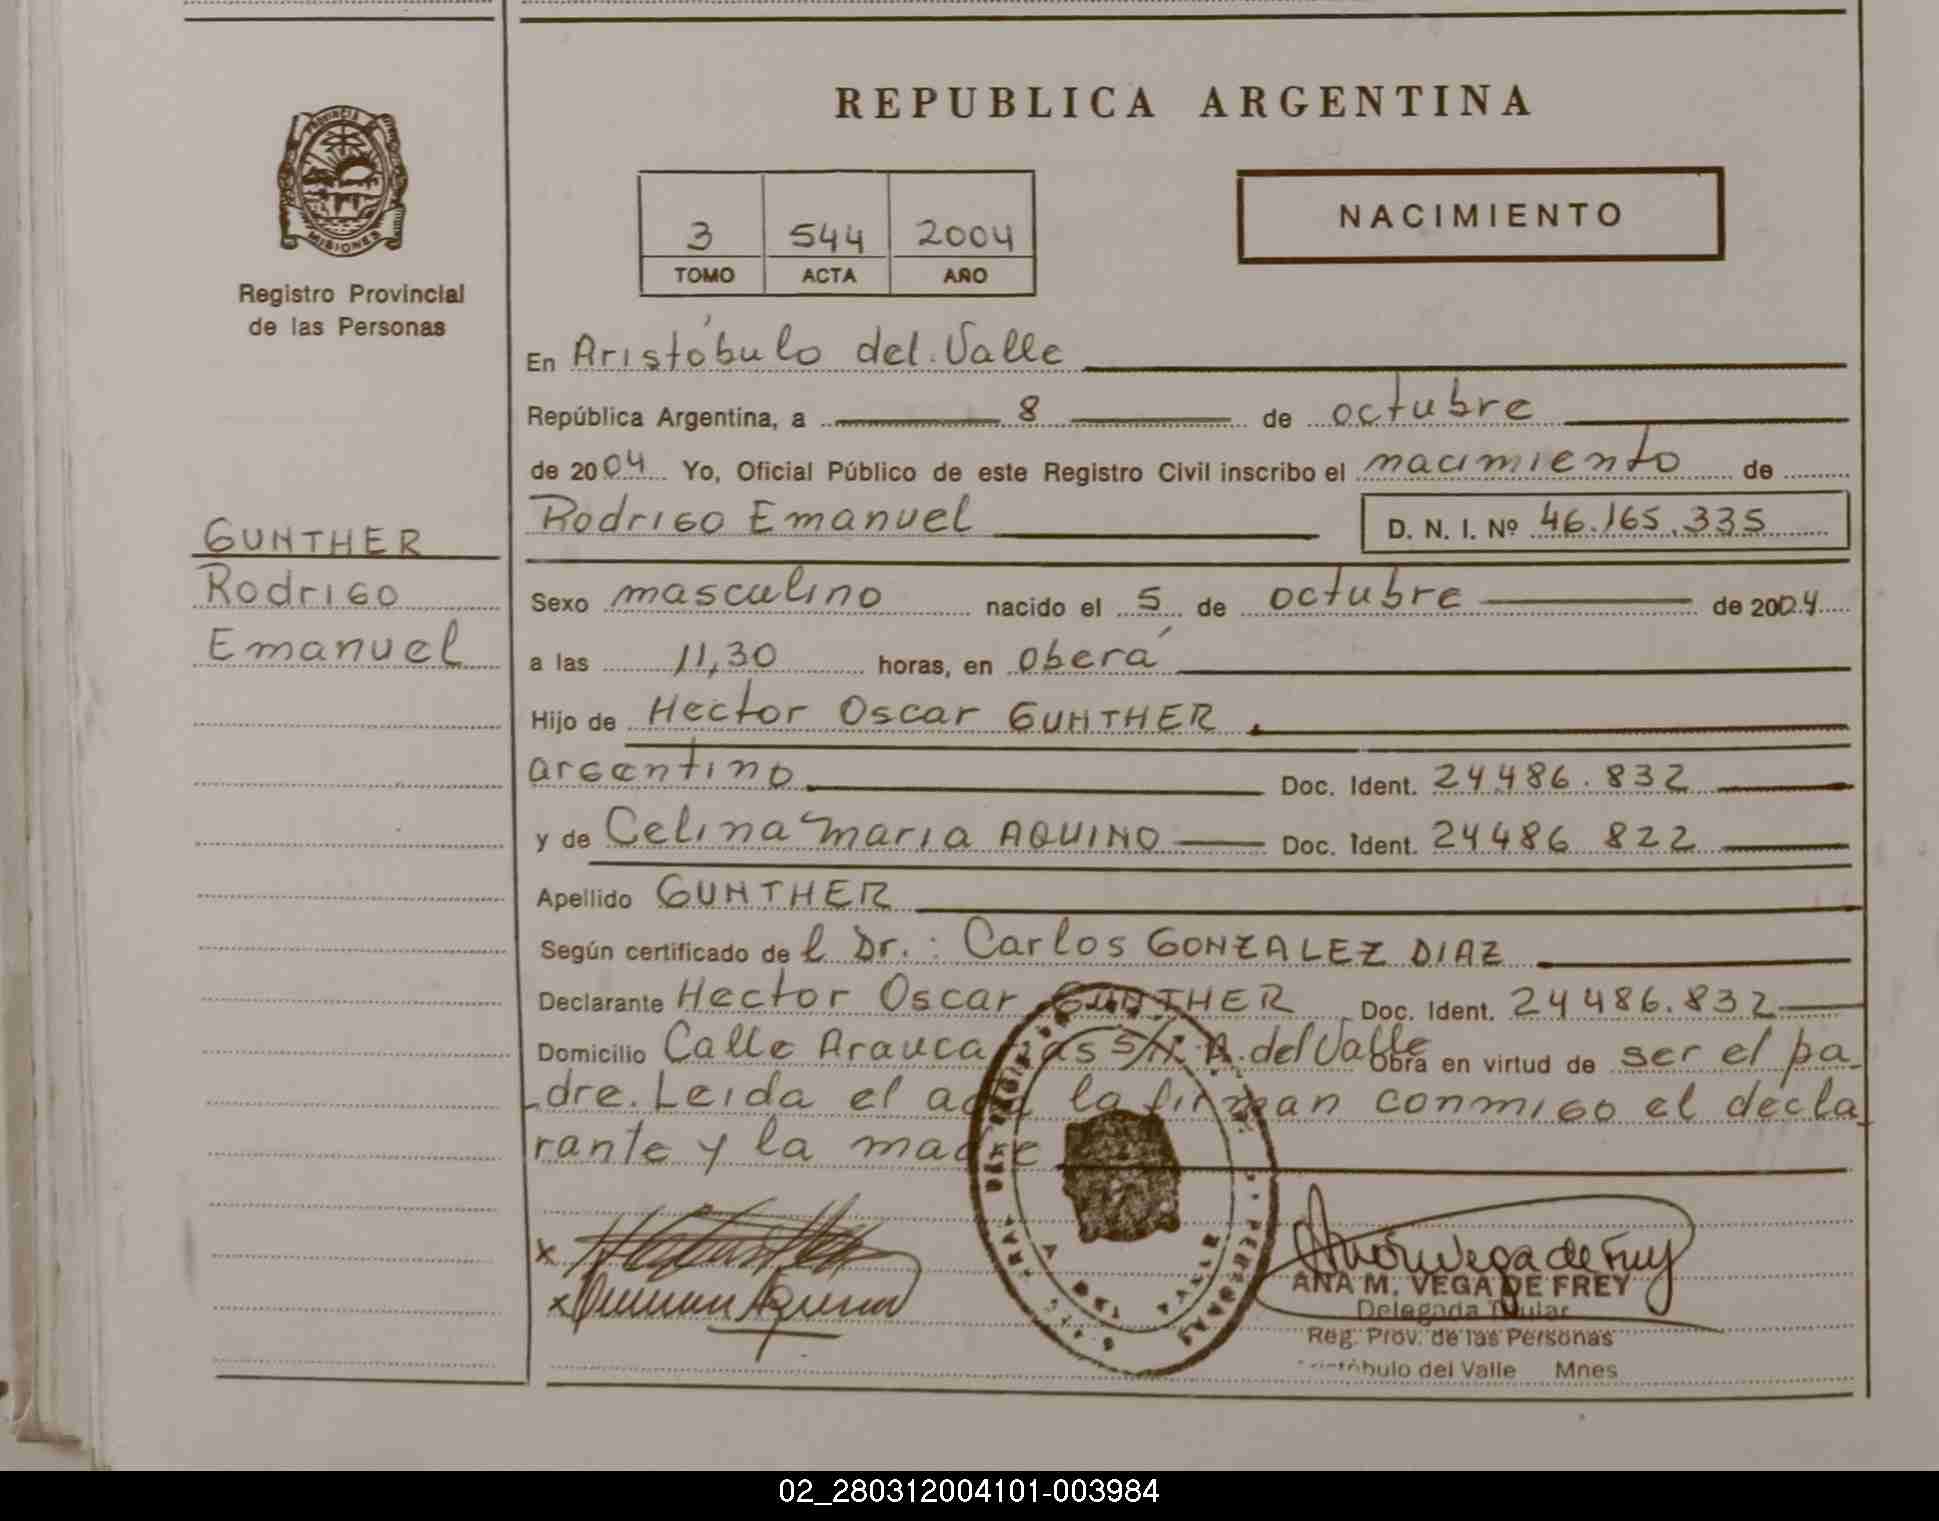 REPUBLICA ARGENTINA
PROVINCIA DE
MISIONES
Registro Provincial
de las Personas
3 544 2004
TOMO ACTA AÑO
NACIMIENTO
En Aristóbulo del Valle
República Argentina, a 8 de octubre
de 2004 Yo, Oficial Público de este Registro Civil inscribo el nacimiento de
Rodrigo Emanuel D. N. I. Nº 46.165.335
GUNTHER
Rodrigo
Emanuel
Sexo masculino nacido el 5 de octubre de 2004
a las 11,30 horas, en Oberá
Hijo de Hector Oscar GUNTHER
argentino Doc. Ident. 24.486.832
y de Celina Maria AQUINO Doc. Ident. 24486 822
Apellido GUNTHER
Según certificado del Dr.: Carlos GONZALEZ DIAZ
Declarante Hector Oscar GUNTHER Doc. Ident. 24486.832
Domicilio Calle Araucarias S/N A. del Valle Obra en virtud de ser el pa-
dre. Leida el acta la firman conmigo el decla
rante y la madre
ANA M. VEGA DE FREY
Delegada Titular
Reg. Prov. de las Personas
Aristóbulo del Valle Mnes
02_280312004101-003984